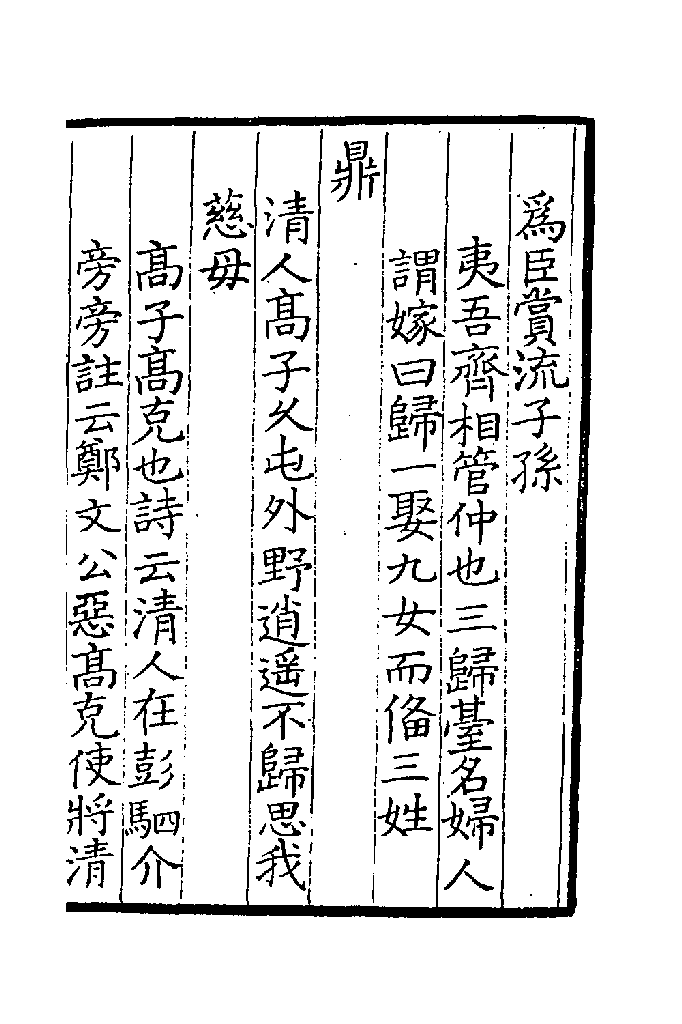 爲臣賞流子孫
夷吾齊相管仲也三歸臺名婦人
謂嫁曰歸一娶九女而俻三姓
鼎
清人髙子久屯外野逍遥不歸思我
慈母
髙子髙克也詩云清人在彭駟介
旁旁註云鄭文公惡髙克使將清